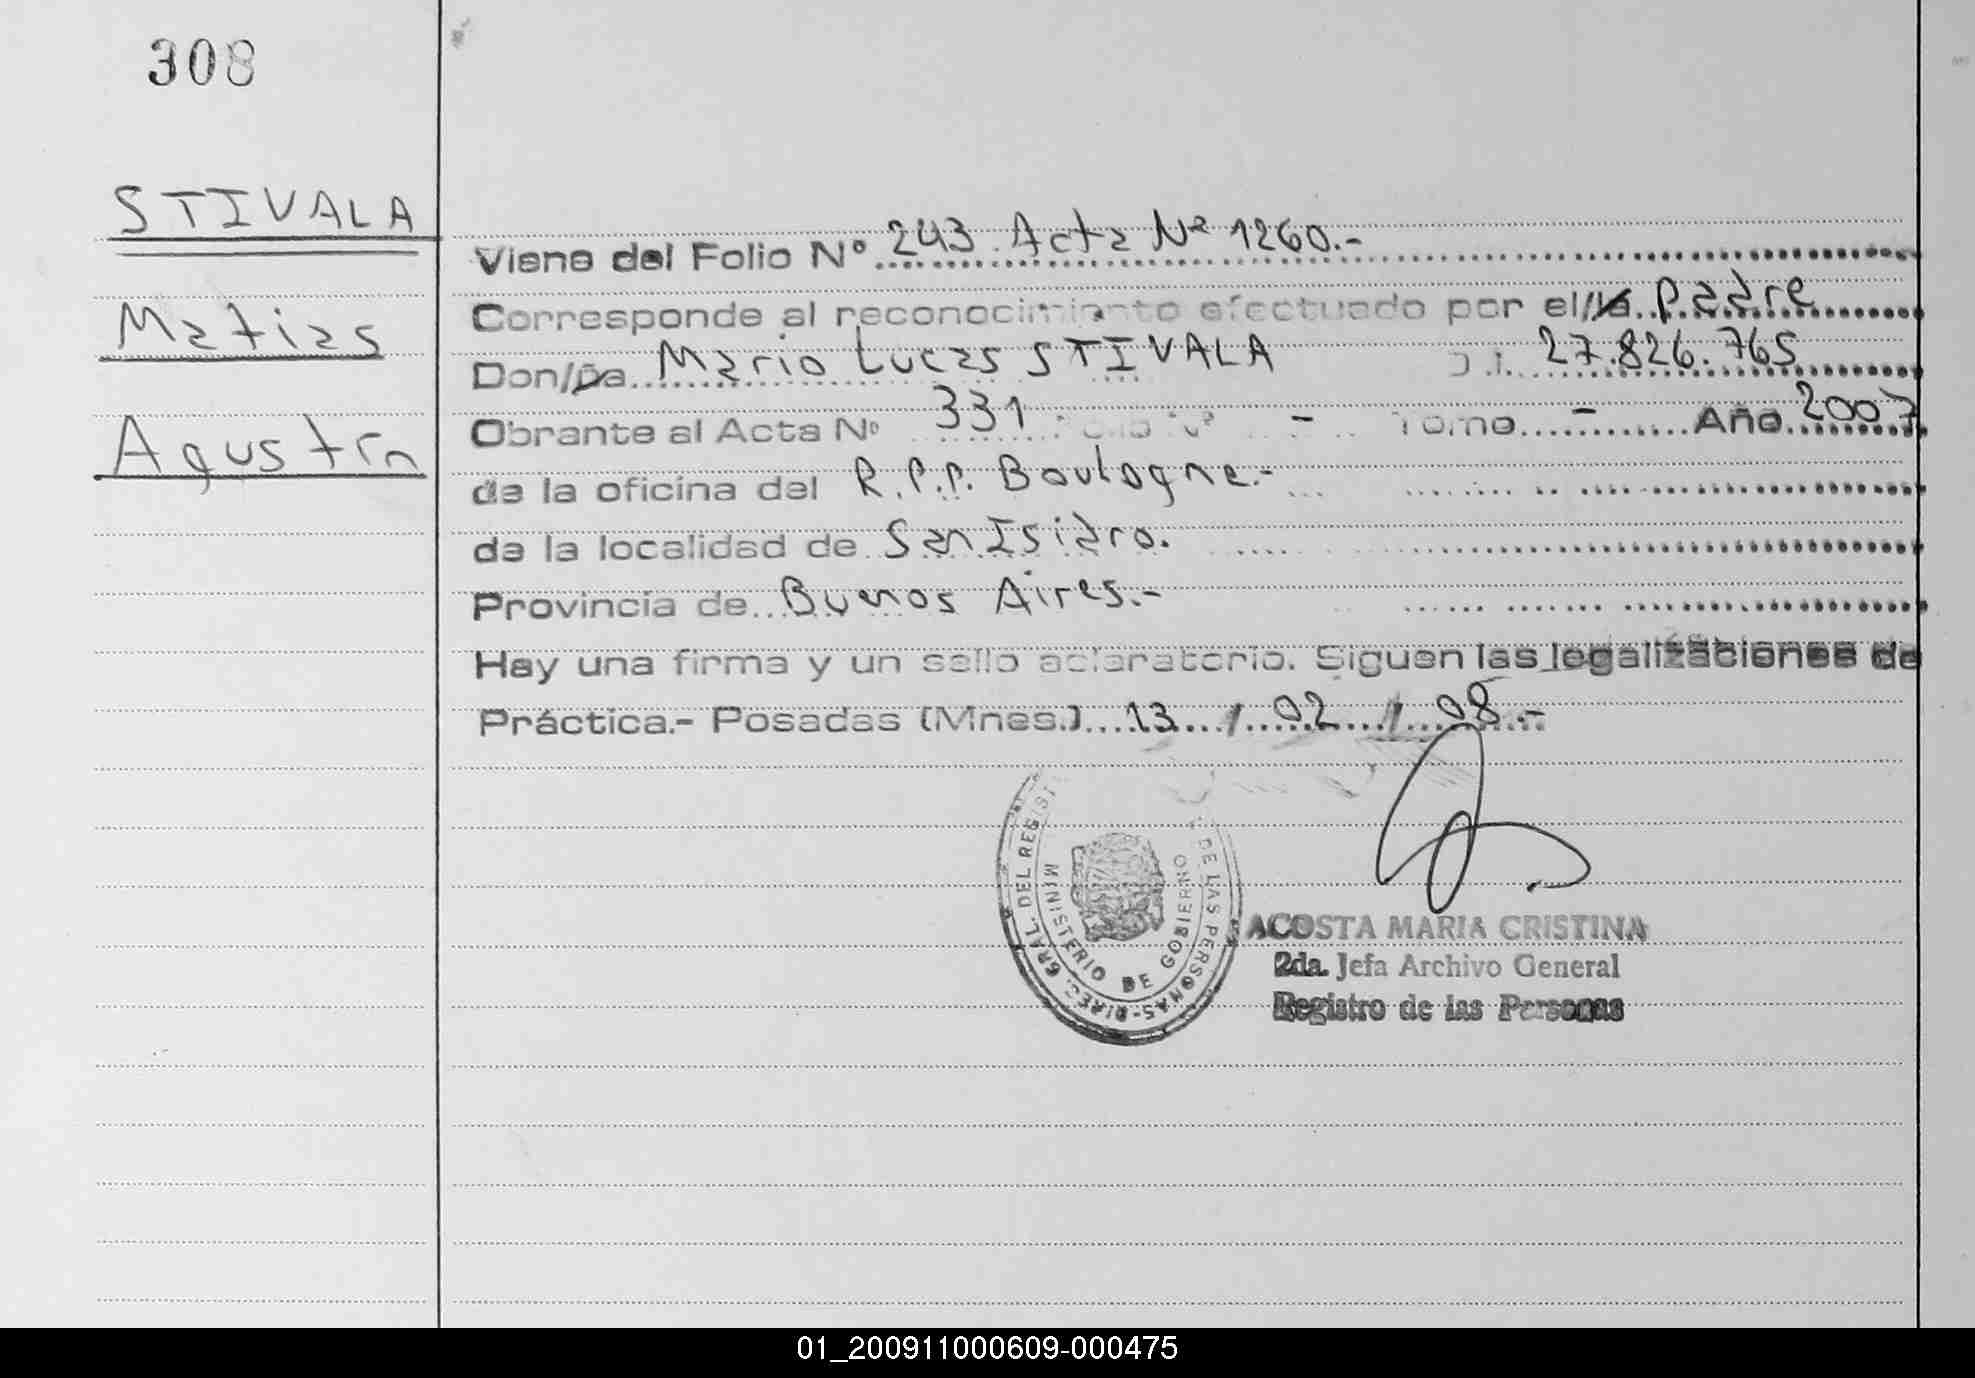 308
STIVALA
Matias
Agustin
Viene del Folio Nº 243. Acta Nº 1260.-
Corresponde al reconocimiento efectuado por el/la padre
Don/ña Mario Lucas STIVALA D.I. 27.826.765
Obrante al Acta Nº 331 Folio Nº - Tomo - Año 2007
de la oficina del R.P.P. Boulogne.-
de la localidad de San Isidro.
Provincia de Buenos Aires.-
Hay una firma y un sello aclaratorio. Siguen las legalizaciones de
Práctica.- Posadas (Mnes.) 13 / 02 / 08.-
DIREC. GRAL. DEL REGIST DE LAS PERSONAS-
MINISTERIO DE GOBIERNO
ACOSTA MARIA CRISTINA
2da. Jefa Archivo General
Registro de las Personas
01_200911000609-000475